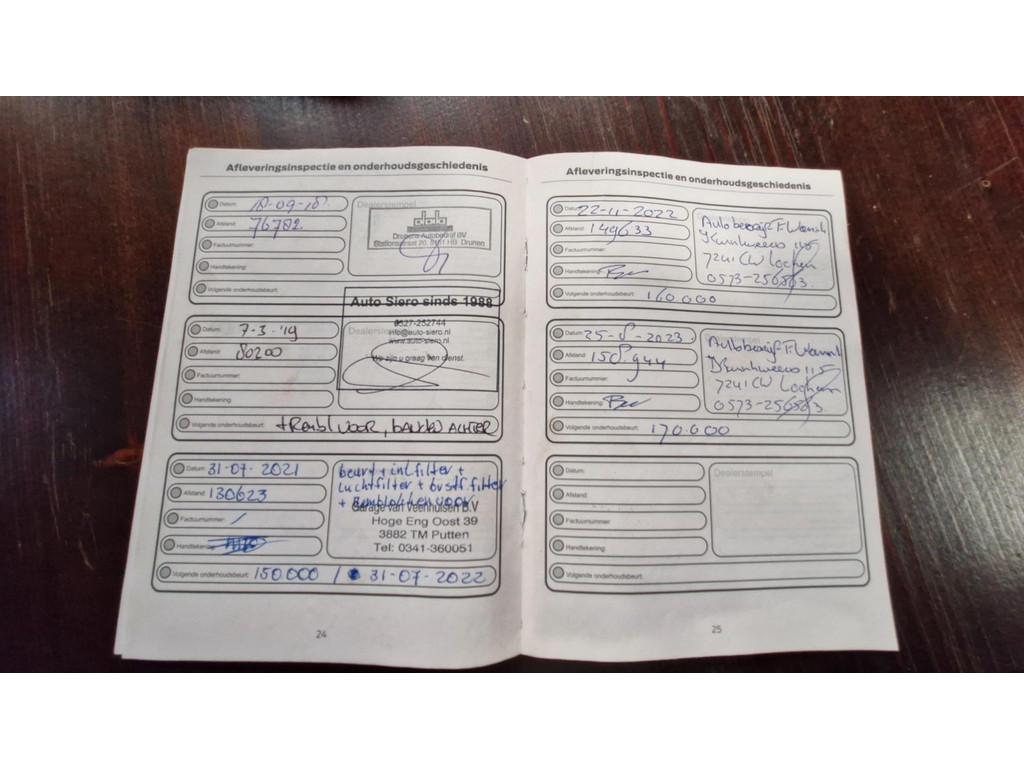 Afleveringsinspectie en onderhoudsgeschiedenis
Datum: 18-09-18
Afstand: 76782
Factuurnummer:
Handtekening:
Volgende onderhoudsbeurt:
Dealerstempel
Drunens Autobedrijf BV
Stationsstraat 20, 5151 HB Drunen
Datum: 7-3-'19
Afstand: 80200
Factuurnummer:
Handtekening:
Volgende onderhoudsbeurt: + Rembl VOOR, BANDEN ACHTER
Auto Siero sinds 1988
0527-252744
info@auto-siero.nl
www.auto-siero.nl
We zijn u graag van dienst.
Datum: 31-07-2021
Afstand: 130623
Factuurnummer: /
Handtekening:
Volgende onderhoudsbeurt: 150.000 / 31-07-2022
beurt + int filter +
luchtfilter + brstf filter
+ Remblokken voor
Garage van Veenhuisen B.V
Hoge Eng Oost 39
3882 TM Putten
Tel: 0341-360051
24
Afleveringsinspectie en onderhoudsgeschiedenis
Datum: 22-11-2022
Afstand: 149633
Factuurnummer:
Handtekening:
Volgende onderhoudsbeurt: 160.000
Autobedrijf F
115
7241 CW Lochem
0573-256803
Datum: 25-8-2023
Afstand: 158.944
Factuurnummer:
Handtekening:
Volgende onderhoudsbeurt: 170.000
Autobedrijf F
115
7241 CW Lochem
0573-256803
Datum:
Afstand:
Factuurnummer:
Handtekening:
Volgende onderhoudsbeurt:
Dealerstempel
25